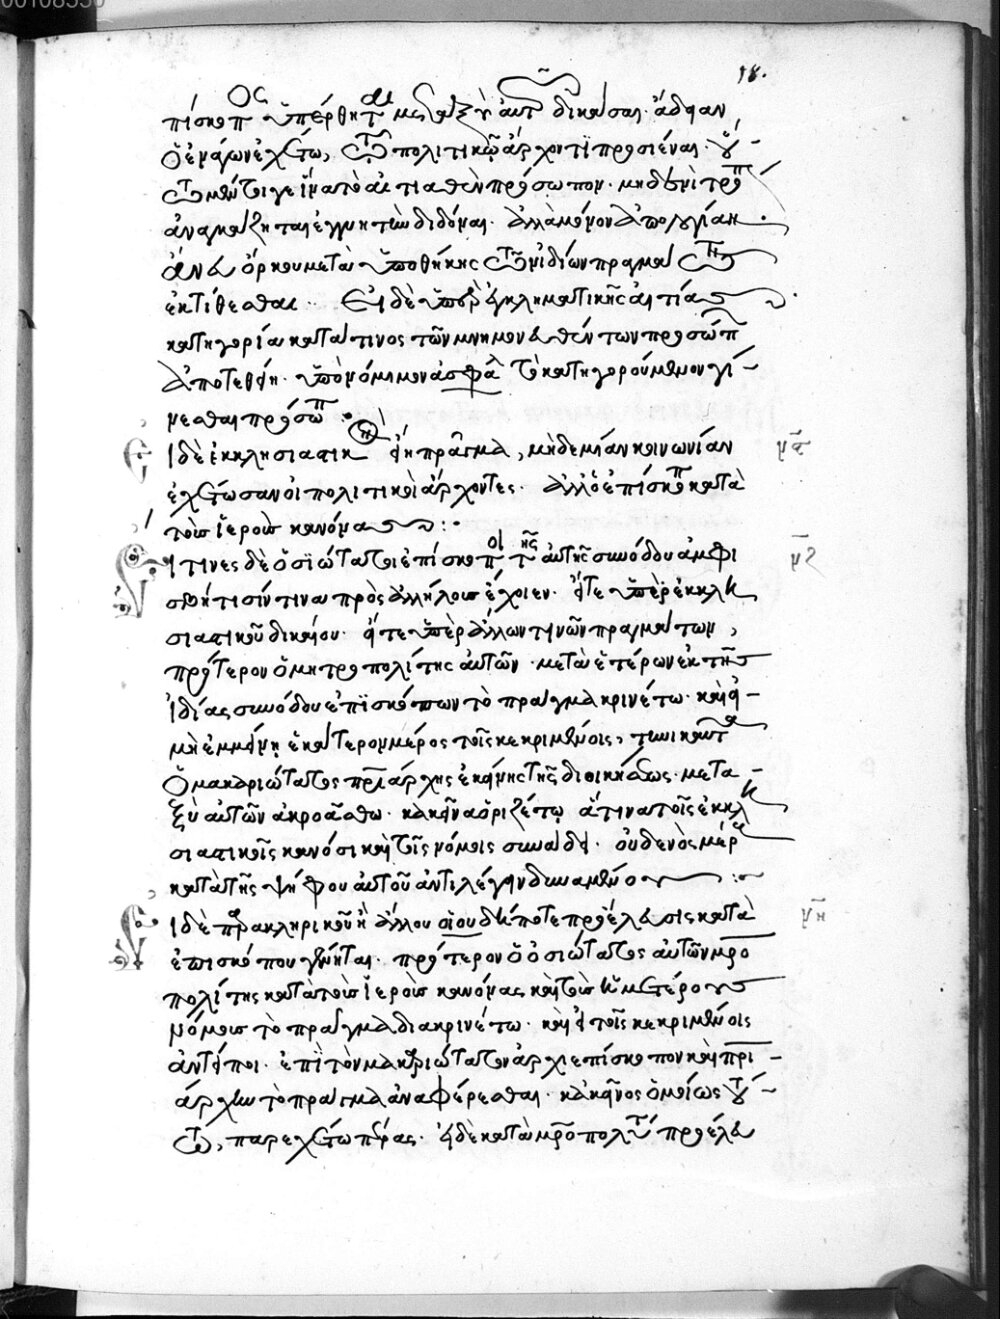 00108550
18.
πίσκοπος ὑπέρθηται μεταξὺ αὐτῶν δικάσαι· ἄδειαν
ὁ ἐνάγων ἐχέτω, τῷ πολιτικῷ ἄρχοντι προσιέναι· οὕ-
τω μέντοιγε ἵνα τὸ αἰτιαθὲν πρόσωπον· μηδενὶ τρόπῳ
ἀναγκάζηται ἐγγυητὴν διδόναι· ἀλλὰ μόνον ἀπολογίαν
ἄνευ ὅρκου μετὰ ὑποθήκης τῶν ἰδίων πραγμάτων
ἐκτίθεσθαι·· Εἰ δὲ ὑπὲρ ἐγκληματικῆς αἰτίας
κατηγορία κατά τινος τῶν μνημονευθέντων προσώπων
ἀποτεθείη· ὑπὸ νόμιμον ἀσφάλειαν τὸ κατηγορούμενον γί-
νεσθαι πρόσωπον·
Εἰ δὲ ἐκκλησιαστικὸν εἴη πρᾶγμα, μηδεμίαν κοινωνίαν
ἐχέτωσαν οἱ πολιτικοὶ ἄρχοντες· ἀλλ' ὁ ἐπίσκοπος κατὰ
τοὺς ἱεροὺς κανόνας:·
Εἴ τινες δὲ ὁσιώτατοι ἐπίσκοποι τῆς αὐτῆς συνόδου ἀμφι
σβήτησίν τινα πρὸς ἀλλήλους ἔχοιεν· εἴτε ὑπὲρ ἐκκλη
σιαστικοῦ δικαίου· εἴτε ὑπὲρ ἄλλων τινῶν πραγμάτων,
πρότερον ὁ μητροπολίτης αὐτῶν· μετὰ ἑτέρων ἐκ τῆς
ἰδίας συνόδου ἐπισκόπων τὸ πρᾶγμα κρινέτω· καὶ εἰ-
μὴ ἐμμείνῃ ἑκάτερον μέρος τοῖς κεκριμένοις, τηνικαῦτα
ὁ μακαριώτατος πατριάρχης ἐκείνης τῆς διοικήσεως· μετα-
ξὺ αὐτῶν ἀκροάσθω· κἀκεῖνα ὁριζέτω ἅτινα τοῖς ἐκκλη
σιαστικοῖς κανόσι καὶ τοῖς νόμοις συνάδει· οὐδενὸς μέρους
κατὰ τῆς ψήφου αὐτοῦ ἀντιλέγειν δυναμένου:·
Εἰ δὲ παρὰ κληρικοῦ ἢ ἄλλου οἱουδήποτε προέλευσις κατὰ
ἐπισκόπου γένηται· πρότερον ὁ ὁσιώτατος αὐτῶν μητρο
πολίτης κατὰ τοὺς ἱεροὺς κανόνας καὶ τοὺς ἡμετέρους
νόμους τὸ πρᾶγμα διακρινέτω· καὶ εἰ τοῖς κεκριμένοις
ἀντείποι· ἐπὶ τὸν μακαριώτατον ἀρχιεπίσκοπον καὶ πατρι-
άρχην τὸ πρᾶγμα ἀναφέρεσθαι· κἀκεῖνος ὁμοίως οὕ-
τω, παρεχέτω πέρας· εἰ δὲ κατὰ μητροπολίτου προέλευ